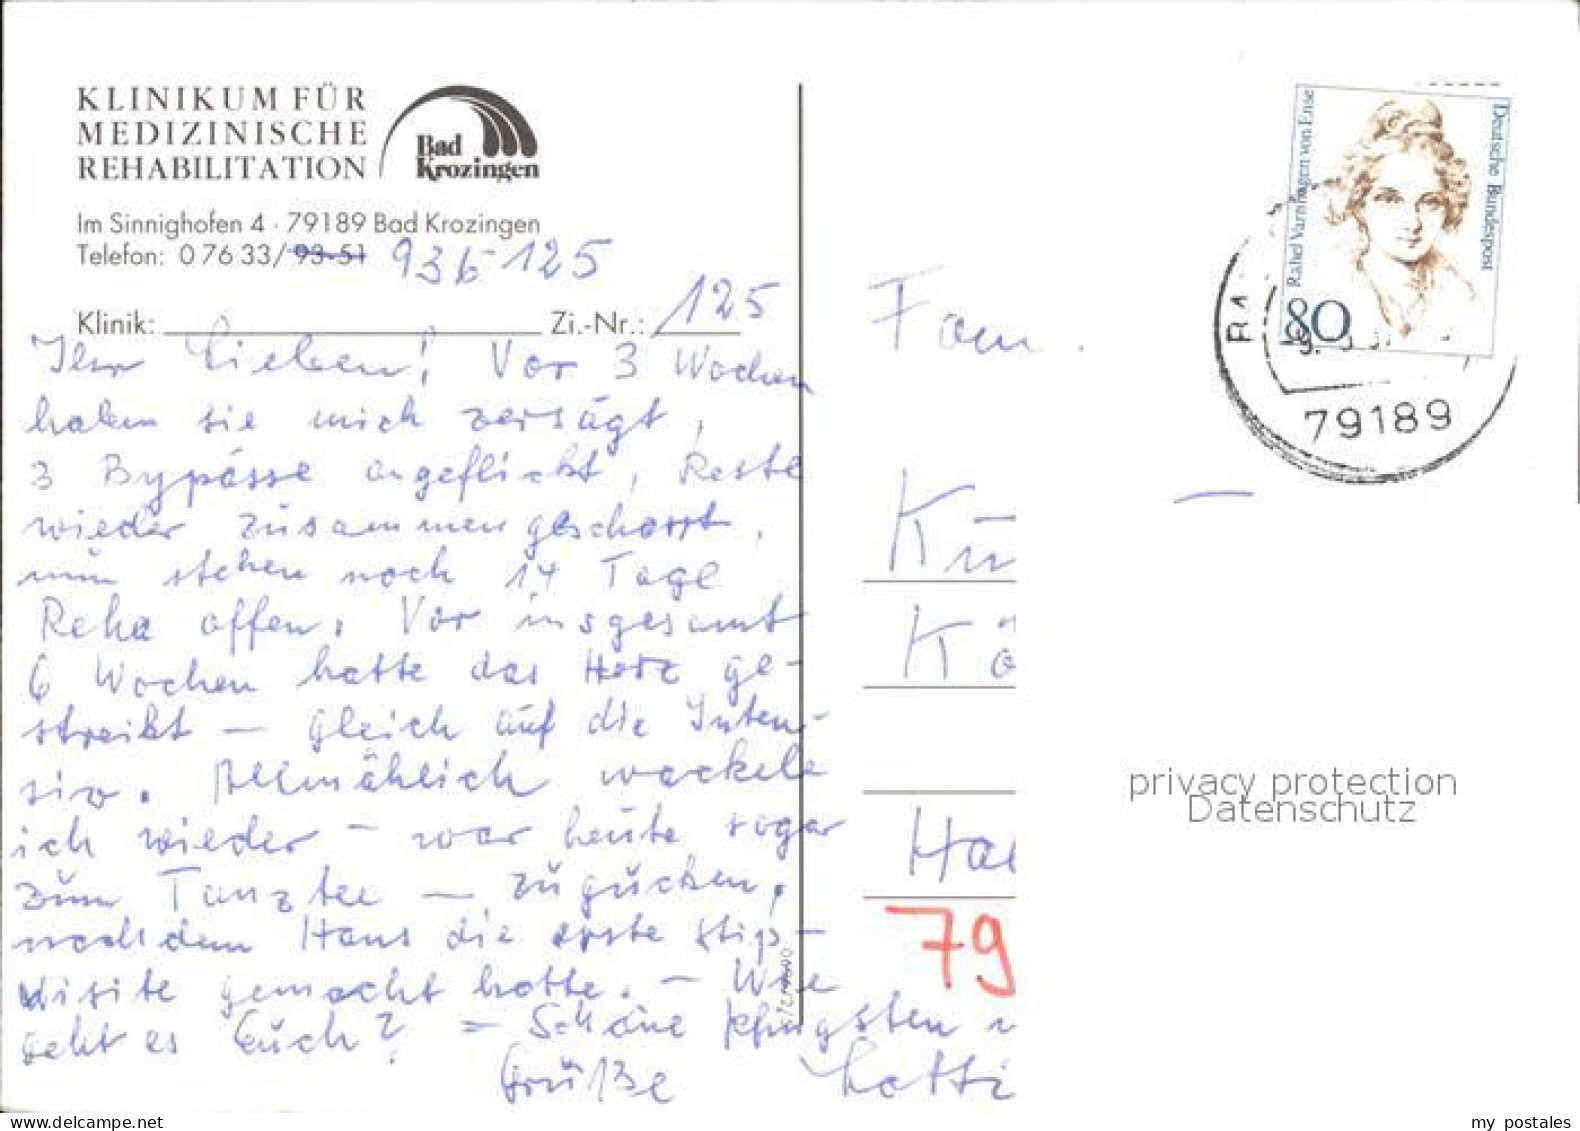 KLINIKUM FÜR
MEDIZINISCHE
REHABILITATION
Bad
Krozingen
Im Sinnighofen 4 · 79189 Bad Krozingen
Telefon: 0 76 33/93-51 936-125
Klinik: Zi.-Nr.: 125
Ihr Lieben! Vor 3 Wochen
haben sie mich zersägt,
3 Bypässe angeflickt, Reste
wieder zusammengeschorrt,
nun stehen noch 14 Tage
Reha offen. Vor insgesamt
6 Wochen hatte das Herz ge-
streikt – gleich auf die Inten-
siv. Allmählich wackele
ich wieder – war heute sogar
zum Tanztee – zugucken,
nachdem Hans die erste Stip-
visite gemacht hatte. – Wie
geht es Euch? = Schöne Pfingsten
Grüße Lotti
Fam.
Kü
Kö
Ha
79
Deutsche Bundespost
Rahel Varnhagen von Ense
80
79189
privacy protection
Datenschutz
www.delcampe.net
my postales